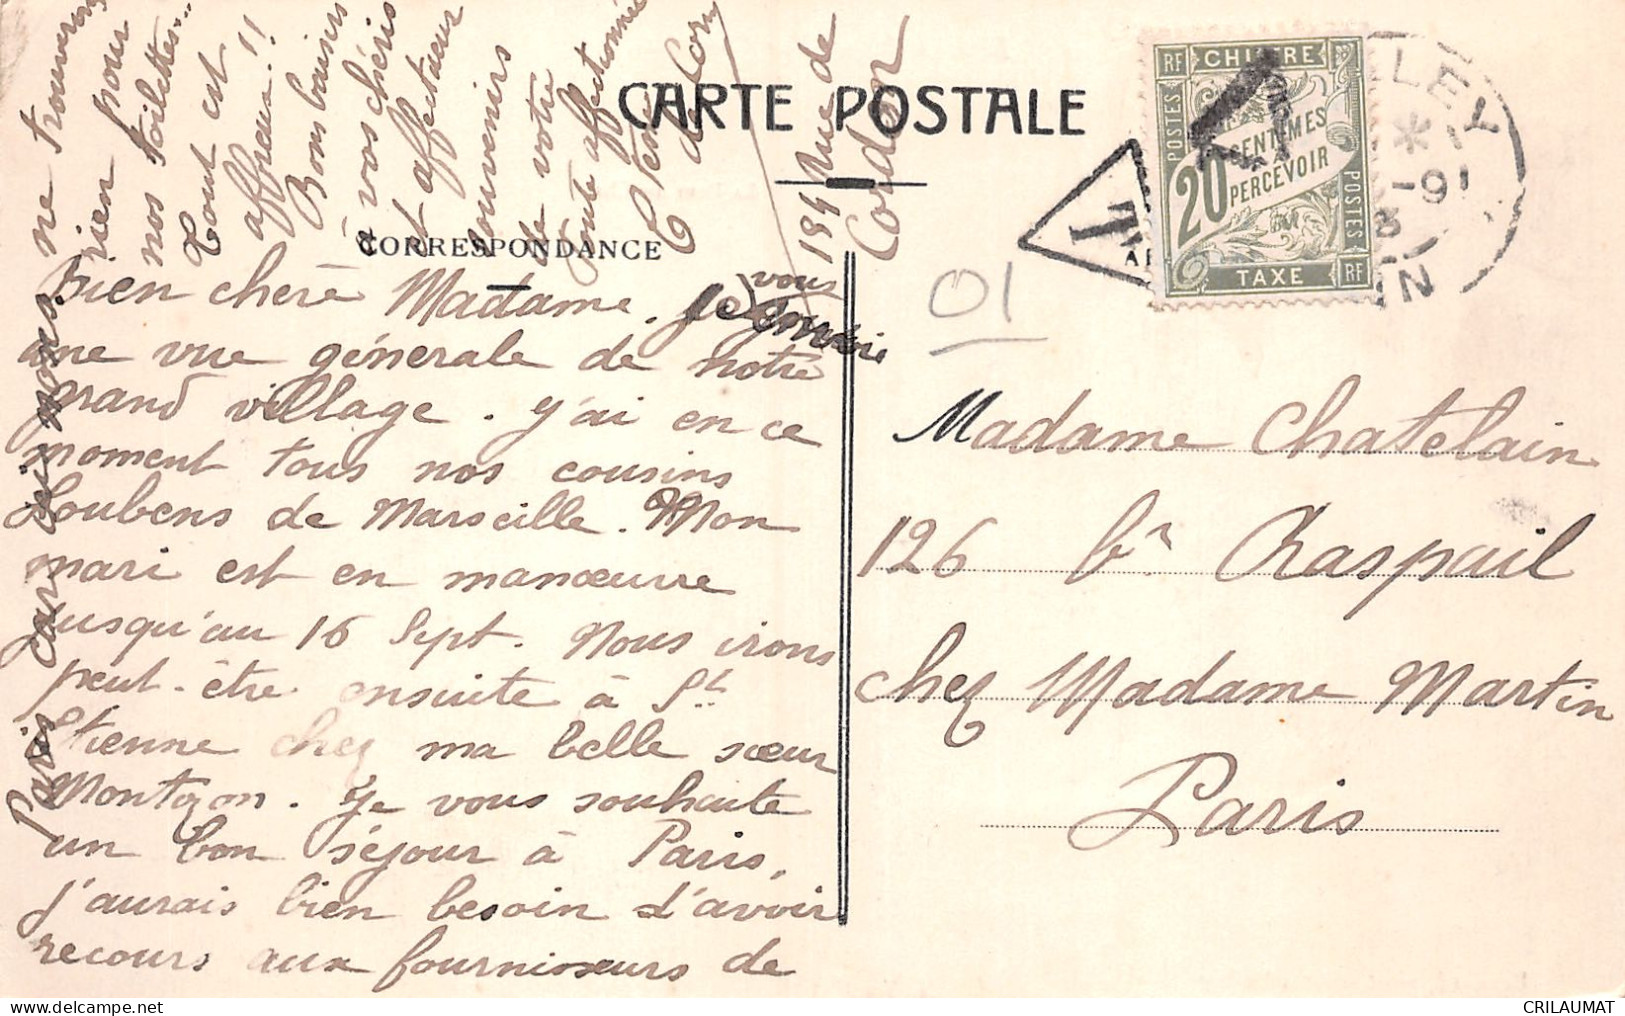 CARTE POSTALE
CORRESPONDANCE
Bien chère Madame. Je vous envoie
une vue générale de notre
grand village. J'ai en ce
moment tous nos cousins
Loubens de Marseille. Mon
mari est en manœuvre
jusqu'au 16 Sept. Nous irons
peut-être ensuite à St
Etienne chez ma belle sœur
Montgon. Je vous souhaite
un bon séjour à Paris,
j'aurais bien besoin d'avoir
recours aux fournisseurs de
Paris car ici nous
ne trouverons
rien pour
nos toilettes...
Tout est
affreux!!
Bons baisers
à vos chéris
et affectueux
souvenirs
de votre
toute affectionnée
de Corn
194 Rue de
Cordon
RF CHIFFRE
POSTES
20 CENTIMES
A
PERCEVOIR
POSTES
TAXE RF
T
LEY
* 1
-91
8
IN
01
Madame Chatelain
126 bd Raspail
chez Madame Martin
Paris
CRILAUMAT